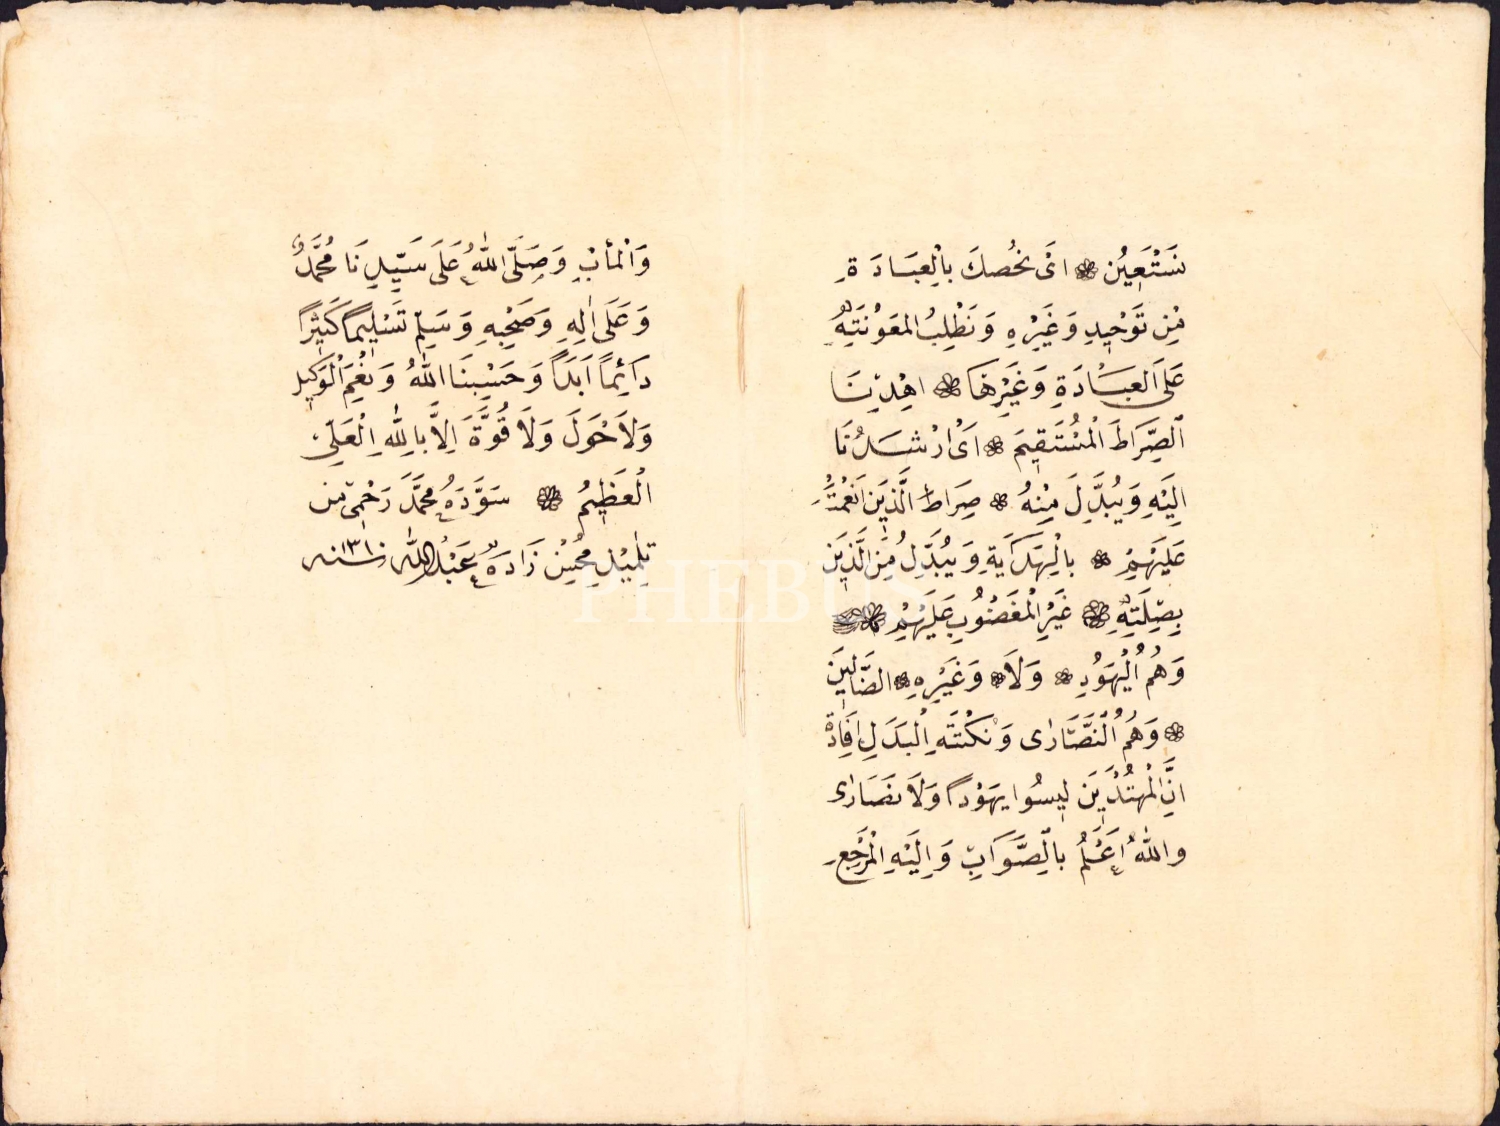 نَسْتَعِيْنُ ❀ اَىْ نَخُصكَ بِالْعِبَادَةِ
مِنْ تَوْحِيدٍ وَغَيْرِهِ وَنَطْلِبُ المَعَوْنَتَهُ
عَلَى العِبَادَةِ وَغَيْرِهَا ❀ اهْدِنَا
الصِّرَاطَ الْمُسْتَقِيمَ ❀ اَىْ اَرْشِدْنَا
اِلَيْهِ وَيُبَدَّلَ مِنْهُ ❀ صِرَاطَ الَّذِيَن اَنْعَمْتَ
عَلَيْهِمْ ❀ بِالْهِدَايَةِ وَيُبَدَّلُ مِنَ الَّذِيَن
بِصِلَتِهِ ❀ غَيْرِ الْمَغْضُوُبِ عَلَيْهِمْ ❀
وَهُمُ الْيَهُوُدِ ❀ وَلَا ❀ وَغَيْرِهِ ❀ الضَّالِّينَ
❀ وَهُمُ الْنَّصَّارٰى وَنَكْتَتَهِ الْبَدَلِ اِفَادَةُ
اَنَّ الْمُهْتَدِيَنَ لَيسُوا يَهَوْداً وَلَا نَصَارٰى
واللّٰهُ اَعْلَمُ بِالصَّوَابِ وَاِلَيْهِ الْمَرْجِعُ
وَالْمأبِ وَصَلَّى اللّٰهُ عَلَى سَيِّدِنَا مُحَمَّدٍ
وَعَلَى اٰلِهِ وَصَحْبِهِ وَسَلِّمْ تَسْلِيماً كَثِيرًا
دَائِماً اَبَداً وَحَسْبِنَا اللّٰهُ وَنِعْمَ الْوَكِيلِ
وَلَا حَوْلَ وَلَا قُوَّةَ اِلاَّ بِاللّٰهِ الْعَلِىّ
الْعَظِيُم ❀ سَوَّدَهُ مُحَمَّدَ رَحْمِى مِن
تِلْمِيْذِ مُحْسِنْ زَادَه عَبْدُاللّٰه سنه ١٣١٠
PHEBUS